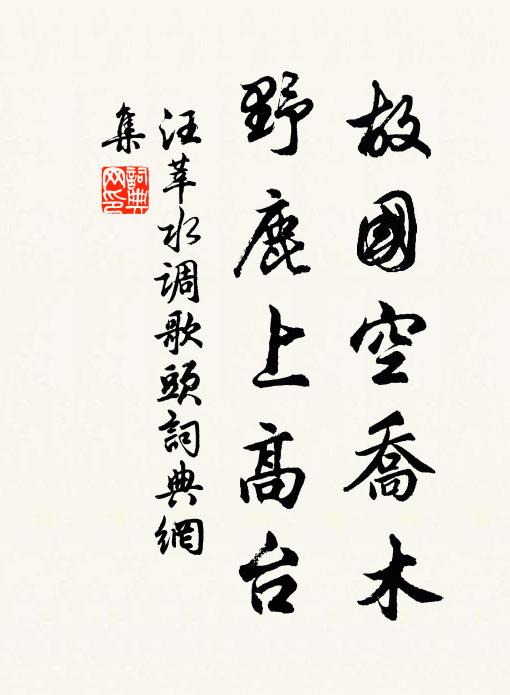 故國空喬木
野鹿上高台
汪莘水调歌頭詞典網
集
詞典
网印